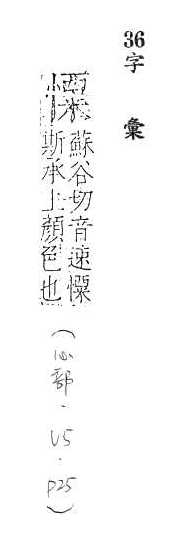 36 字彙
憟 蘇谷切音速憟
斯承上顏色也
（心部．V5．P25）